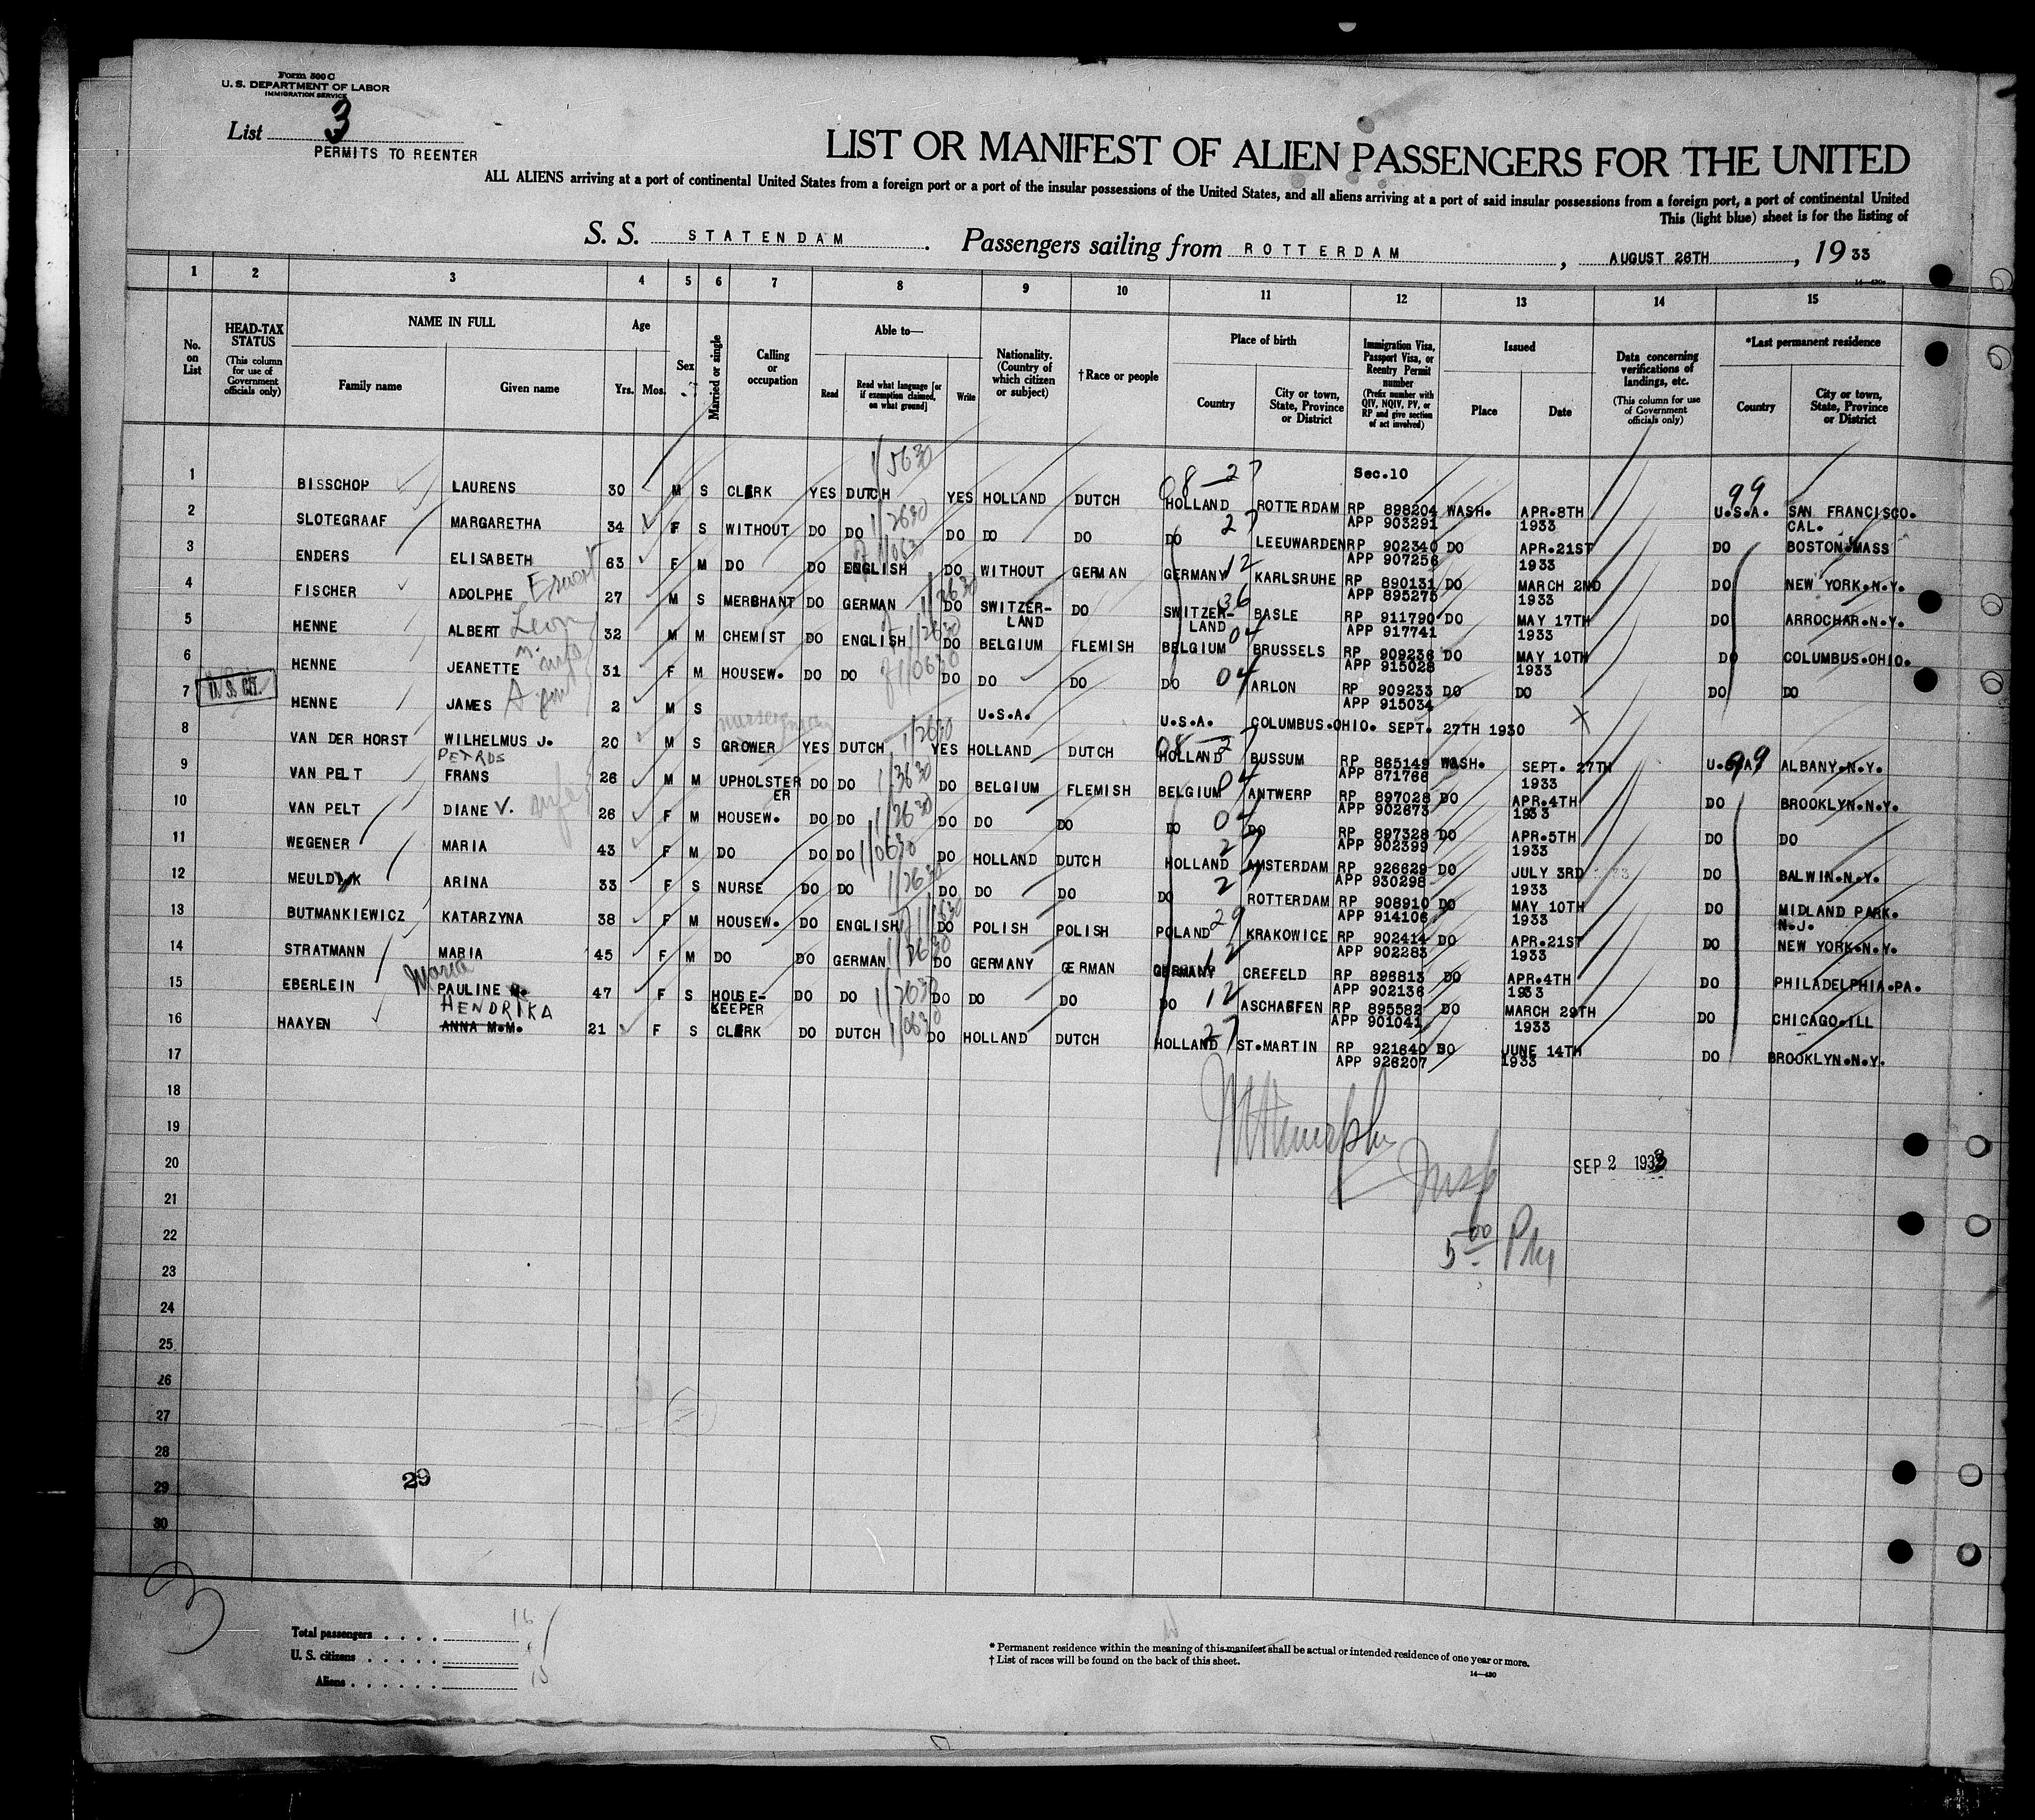 Form 500 C
U. S. DEPARTMENT OF LABOR
IMMIGRATION SERVICE
List 3
PERMITS TO REENTER
LIST OR MANIFEST OF ALIEN PASSENGERS FOR THE UNITED
ALL ALIENS arriving at a port of continental United States from a foreign port or a port of the insular possessions of the United States, and all aliens arriving at a port of said insular possessions from a foreign port, a port of continental United
This (light blue) sheet is for the listing of
S. S. STATENDAM. Passengers sailing from ROTTERDAM, AUGUST 26TH, 1933
1 2 3 4 5 6 7 8 9 10 11 12 13 14 15
No. on List
HEAD-TAX STATUS (This column for use of Government officials only)
NAME IN FULL
Family name Given name
Age
Yrs. Mos.
Sex
Married or single
Calling or occupation
Able to—
Read Read what language [or if exemption claimed, on what ground] Write
Nationality. (Country of which citizen or subject)
†Race or people
Place of birth
Country City or town, State, Province or District
Immigration Visa, Passport Visa, or Reentry Permit number (Prefix number with QIV, NQIV, PV, or RP and give section of act involved)
Issued
Place Date
Data concerning verifications of landings, etc. (This column for use of Government officials only)
*Last permanent residence
Country City or town, State, Province or District
Sec.10
1 BISSCHOP LAURENS 30 M S CLERK YES DUTCH 1/5630 YES HOLLAND DUTCH 08-27 HOLLAND ROTTERDAM RP 898204 WASH. APR.8TH 99 U.S.A. SAN FRANCISCO.
APP 903291 1933 CAL.
2 SLOTEGRAAF MARGARETHA 34 F S WITHOUT DO DO 1/2630 DO DO DO DO 27 LEEUWARDEN RP 902340 DO APR.21ST DO BOSTON.MASS
APP 907256 1933
3 ENDERS ELISABETH 63 F M DO DO ENGLISH DO WITHOUT GERMAN GERMANY 12 KARLSRUHE RP 890131 DO MARCH 2ND DO NEW YORK.N.Y.
APP 895275 1933
4 FISCHER ADOLPHE Ernest 27 M S MERCHANT DO GERMAN 1/3630 DO SWITZERLAND DO SWITZERLAND 36 BASLE RP 911790 DO MAY 17TH DO ARROCHAR.N.Y.
APP 917741 1933
5 HENNE ALBERT Leon 32 M M CHEMIST DO ENGLISH 1/2630 DO BELGIUM FLEMISH BELGIUM 04 BRUSSELS RP 909236 DO MAY 10TH DO COLUMBUS.OHIO.
APP 915028 1933
6 HENNE JEANETTE M. wife 31 F M HOUSEW. DO DO 1/0630 DO DO DO DO 04 ARLON RP 909233 DO DO DO DO
APP 915034
U.S. CIT.
7 HENNE JAMES A 2 M S U.S.A. U.S.A. COLUMBUS.OHIO. SEPT. 27TH 1930 X
8 VAN DER HORST WILHELMUS J. 20 M S GROWER YES DUTCH 1/2630 YES HOLLAND DUTCH 08-27 HOLLAND BUSSUM RP 865149 WASH. SEPT. 27TH U.S.A. 99 ALBANY.N.Y.
APP 871766 1933
PETRUS
9 VAN PELT FRANS 26 M M UPHOLSTERER DO DO 1/3630 DO BELGIUM FLEMISH BELGIUM 04 ANTWERP RP 897028 DO APR.4TH DO BROOKLYN.N.Y.
APP 902673 1933
10 VAN PELT DIANE V. wife 26 F M HOUSEW. DO DO 1/2630 DO DO DO DO 04 DO RP 897328 DO APR.5TH DO DO
APP 902399 1933
11 WEGENER MARIA 43 F M DO DO DO 1/0630 DO HOLLAND DUTCH HOLLAND 27 AMSTERDAM RP 926629 DO JULY 3RD DO BALWIN.N.Y.
APP 930298 1933
12 MEULDYK ARINA 33 F S NURSE DO DO 1/2630 DO DO DO DO 27 ROTTERDAM RP 908910 DO MAY 10TH DO MIDLAND PARK.
APP 914106 1933 N.J.
13 BUTMANKIEWICZ KATARZYNA 38 F M HOUSEW. DO ENGLISH DO POLISH POLISH POLAND 29 KRAKOWICE RP 902414 DO APR.21ST DO NEW YORK.N.Y.
APP 902283 1933
14 STRATMANN MARIA 45 F M DO DO GERMAN 1/2630 DO GERMANY GERMAN GERMANY 12 CREFELD RP 896813 DO APR.4TH DO PHILADELPHIA.PA.
APP 902136 1933
15 EBERLEIN Maria PAULINE 47 F S HOUSEKEEPER DO DO 1/2630 DO DO DO DO 12 ASCHAFFEN RP 895582 DO MARCH 29TH DO CHICAGO.ILL
APP 901041 1933
HENDRIKA
16 HAAYEN ANNA M.M. 21 F S CLERK DO DUTCH 1/0630 DO HOLLAND DUTCH HOLLAND 27 ST.MARTIN RP 921840 DO JUNE 14TH DO BROOKLYN.N.Y.
APP 926207 1933
17
18
19
20
SEP 2 1933
21
22
5 00 PM
23
24
25
26
27
28
29
29
30
3
Total passengers 16
U. S. citizens 1
Aliens 15
* Permanent residence within the meaning of this manifest shall be actual or intended residence of one year or more.
† List of races will be found on the back of this sheet.
14—430